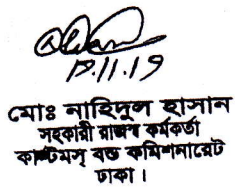 17.11.19
মোঃ নাহিদুল হাসান
সহকারী রাজস্ব কর্মকর্তা
কাস্টমস্ বন্ড কমিশনারেট
ঢাকা।